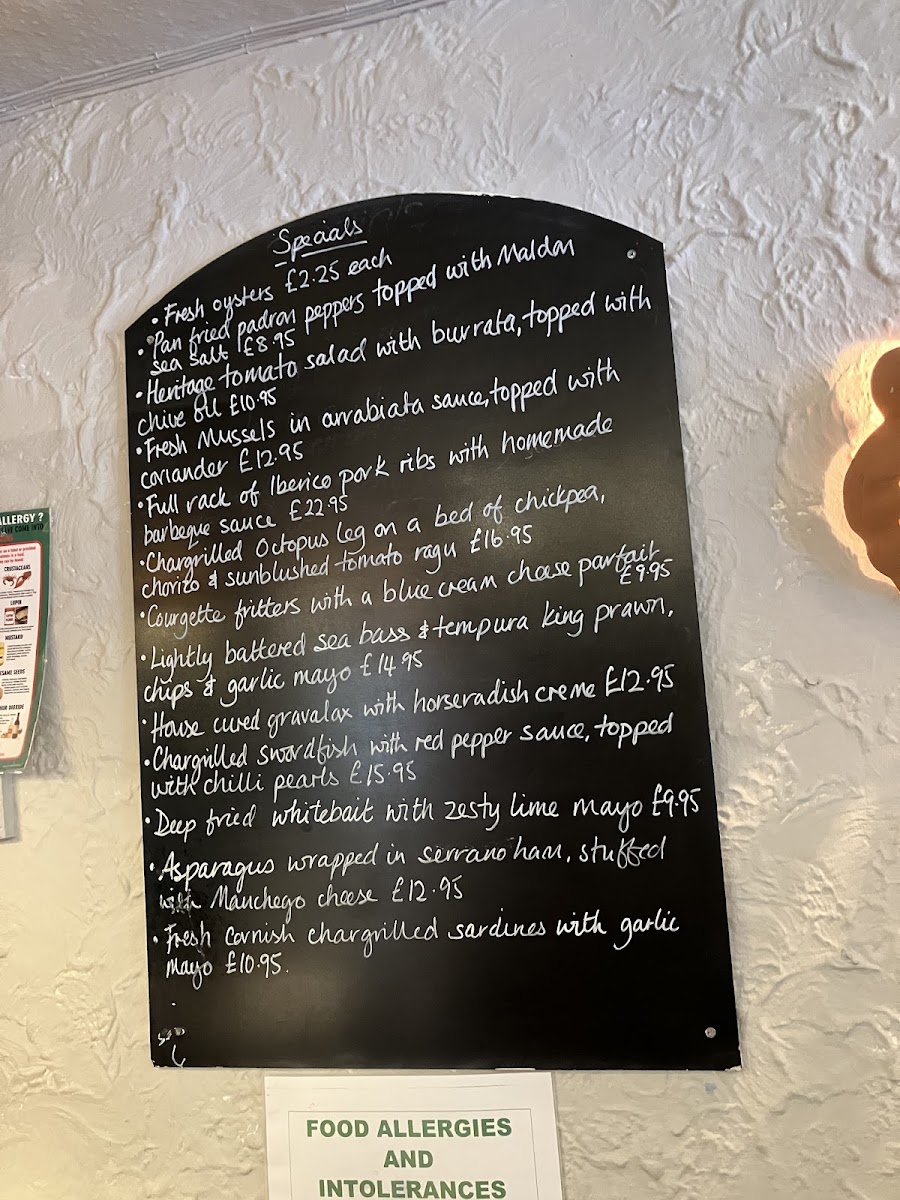 Specials
• Fresh oysters £2.25 each
• Pan fried padron peppers topped with Maldon
sea salt £8.95
• Heritage tomato salad with burrata, topped with
chive oil £10.95
• Fresh Mussels in arrabiata sauce, topped with
coriander £12.95
• Full rack of Iberico pork ribs with homemade
barbeque sauce £22.95
• Chargrilled Octopus leg on a bed of chickpea,
chorizo & sunblushed tomato ragu £16.95
• Courgette fritters with a blue cream cheese parfait
£9.95
• Lightly battered sea bass & tempura king prawn,
chips & garlic mayo £14.95
• House cured gravalax with horseradish creme £12.95
• Chargrilled swordfish with red pepper sauce, topped
with chilli pearls £15.95
• Deep fried whitebait with zesty lime mayo £9.95
• Asparagus wrapped in serrano ham, stuffed
with Manchego cheese £12.95
• Fresh Cornish chargrilled sardines with garlic
mayo £10.95.
ALLERGY ?
CRUSTACEANS
LUPIN
MUSTARD
FOOD ALLERGIES
AND
INTOLERANCES